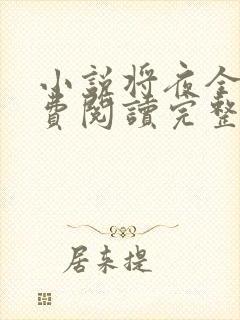 小说将夜全
費閱讀完整
居来提